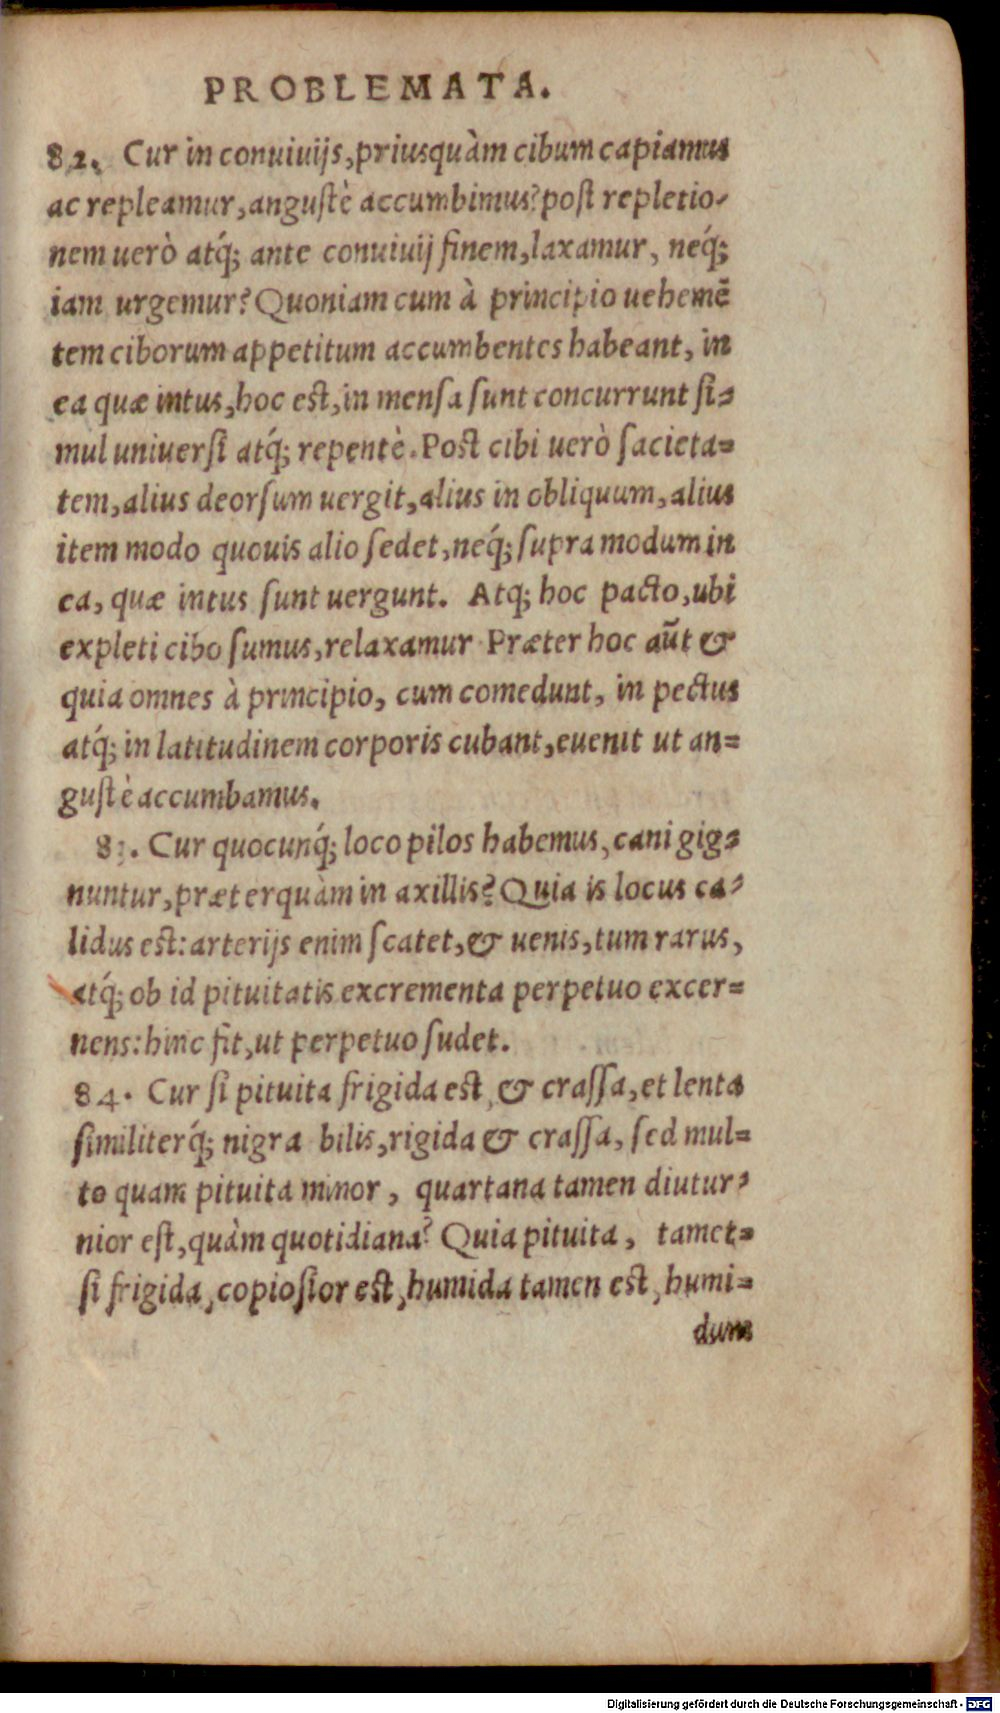 PROBLEMATA.
82. Cur in conuiuijs, priusquàm cibum capiamus
ac repleamur, angustè accumbimus? post repletio-
nem uerò atq́; ante conuiuij finem, laxamur, neq́;
iam urgemur? Quoniam cum à principio uehemẽ
tem ciborum appetitum accumbentes habeant, in
ea quæ intus, hoc est, in mensa sunt concurrunt si-
mul uniuersi atq́; repentè. Post cibi uerò sacieta-
tem, alius deorsum uergit, alius in obliquum, alius
item modo quouis alio sedet, neq́; supra modum in
ea, quæ intus sunt uergunt. Atq; hoc pacto, ubi
expleti cibo sumus, relaxamur Præter hoc aũt &
quia omnes à principio, cum comedunt, in pectus
atq́; in latitudinem corporis cubant, euenit ut an-
gustè accumbamus.
83. Cur quocunq́; loco pilos habemus, cani gig-
nuntur, præterquàm in axillis? Quia is locus ca-
lidus est: arterijs enim scatet, & uenis, tum rarus,
atq́; ob id pituitatis excrementa perpetuo excer-
nens: hinc fit, ut perpetuo sudet.
84. Cur si pituita frigida est, & crassa, et lenta
similiterq́; nigra bilis, rigida & crassa, sed mul-
to quam pituita minor, quartana tamen diutur-
nior est, quàm quotidiana? Quia pituita, tamet-
si frigida, copiosior est, humida tamen est, humi-
dum
Digitalisierung gefördert durch die Deutsche Forschungsgemeinschaft - DFG